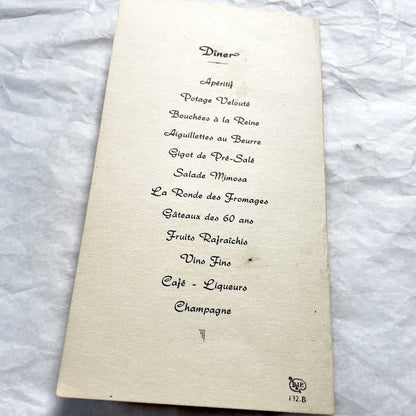 Dîner
Apéritif
Potage Velouté
Bouchées à la Reine
Aiguillettes au Beurre
Gigot de Pré-Salé
Salade Mimosa
La Ronde des Fromages
Gâteaux des 60 ans
Fruits Rafraîchis
Vins Fins
Café - Liqueurs
Champagne
132.B